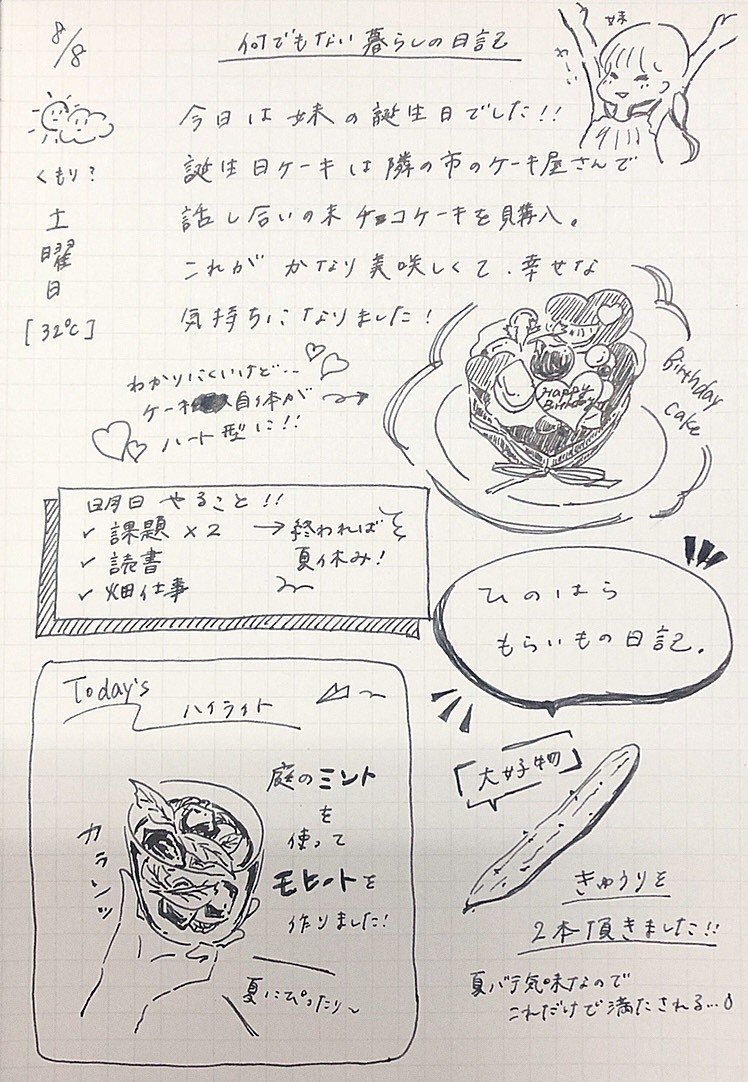 8/8
何でもない暮らしの日記
妹
わーい
くもり?
土
曜
日
[32℃]
今日は妹の誕生日でした!!
誕生日ケーキは隣の市のケーキ屋さんで
話し合いの末チョコケーキを購入。
これがかなり美味しくて、幸せな
気持ちになりました!
わかりにくいけど...
ケーキ自体が→
ハート型に!!
Happy
Birthday
Birthday
Cake
明日やること!!
✓ 課題×2 →終われば
✓ 読書 夏休み!
✓ 畑仕事
ひのはら
もらいもの日記。
Today's
ハイライト
庭のミント
を
使って
モヒートを
作りました!
カランッ
夏にぴったり〜
「大好物」
きゅうりを
2本頂きました!!
夏バテ気味なので
これだけで満たされる...